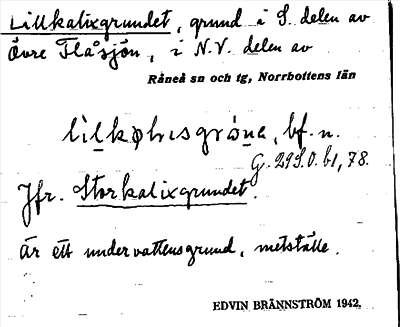 Lillkalixgrundet, grund i S. delen av
Övre Flåsjön, i N.V. delen av
Råneå sn och tg, Norrbottens län
bf. n.
G. 29 S.O. b1, 78.
Jfr. Storkalixgrundet.
Är ett undervattensgrund, metställe.
EDVIN BRÄNNSTRÖM 1942,